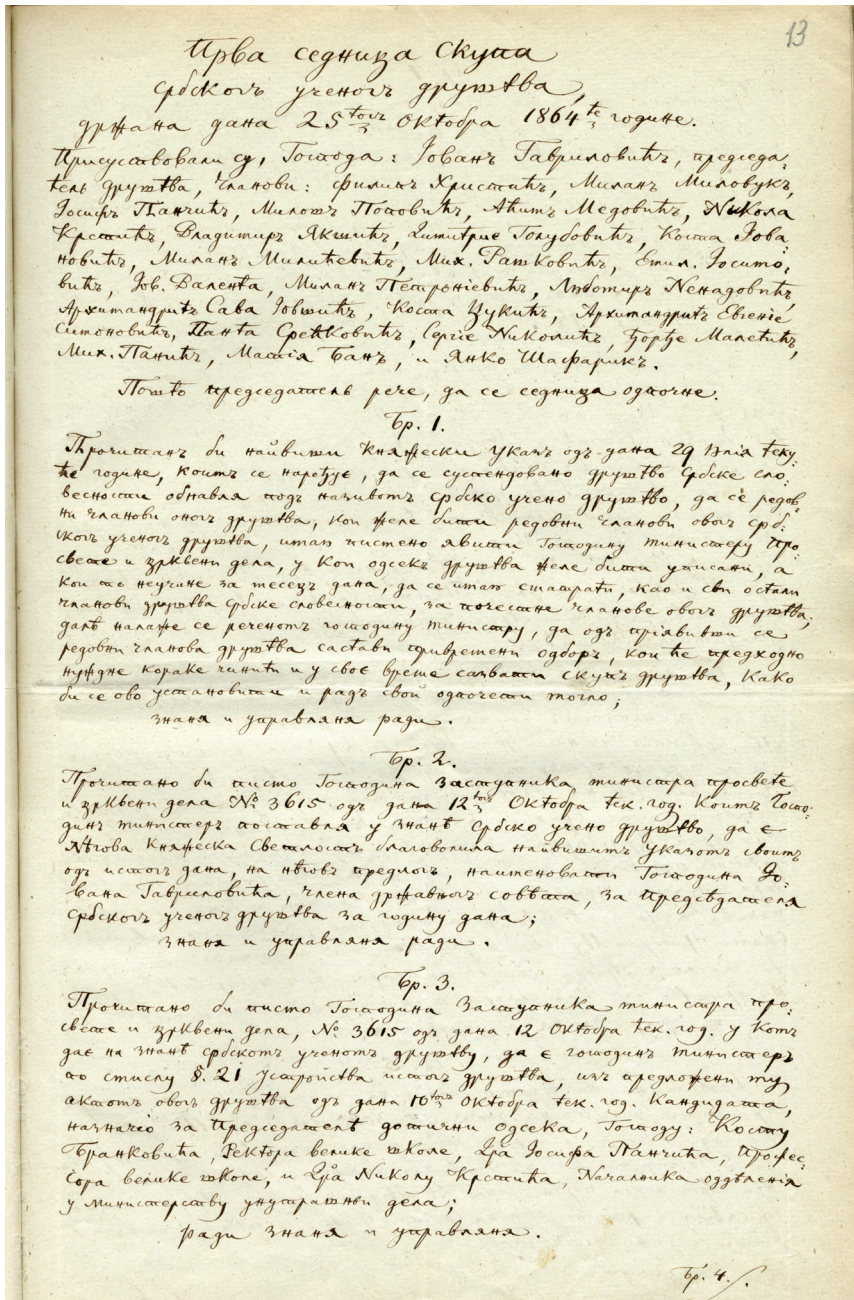 13
Прва седница Скупа
србскогъ ученогъ друштва,
држана дана 25тогъ Октобра 1864те године.
Присуствовали су, Господа: Іованъ Гавриловићъ, председа-
тель друштва, Чланови: Филипъ Христићъ, Миланъ Миловукъ,
Іосифъ Панчићъ, Милошъ Поповићъ, Аћимъ Медовићъ, Никола
Крстићъ, Владимиръ Якшићъ, Димитріе Голубовићъ, Коста Іова-
новићъ, Миланъ Милићевићъ, Мих. Рашковићъ, Емил. Іосимо-
вићъ, Іов. Валента, Миланъ Петроніевићъ, Любомиръ Ненадовићъ,
Архимандритъ Сава Іовшићъ, Коста Цукићъ, Архимандритъ Евгеніе
Симоновићъ, Панта Срећковићъ, Сергіе Николићъ, Ђорђе Малетићъ,
Мих. Панићъ, Матія Банъ, и Янко Шафарикъ.
Пошто председатель рече, да се седница одпочне.
Бр. 1.
Прочитанъ би найвиши Княжески Указъ одъ дана 29 Юлія теку-
ће године, коимъ се наређує, да се суспендовано друштво Србске сло-
весности обнавля подъ називомъ србско учено друштво, да се редов-
ни чланови оногъ друштва, кои желе бити редовни чланови овогъ срб-
скогъ ученогъ друштва, имаю писмено явити Господину министеру про-
свете и црквени дела, у кои одсекъ друштва желе бити уписани, а
кои то неучине за месецъ дана, да се имаю сматрати, као и сви остали
чланови друштва србске словесности, за почестне чланове овогъ друштва;
далѣ налаже се реченомъ господину министру, да одъ пріявивши се
редовни чланова друштва састави привремени одборъ, кои ће предходно
нуждне кораке чинити и у своє време сазвати скупъ друштва, како
би се ово установити и радъ свой одпочети могло;
знаня и управляня ради.
Бр. 2.
Прочитано би писмо Господина Заступника министра просвете
и црквени дела № 3615 одъ дана 12тогъ Октобра тек. год. Коимъ Госпо-
динъ министеръ поставля у знанѣ србско учено друштво, да є
Нѣгова Княжеска Светлость благоволила найвишимъ указомъ своимъ
одъ истогъ дана, на нѣговъ предлогъ, наименовати Господина Іо-
вана Гавриловића, члена државногъ совѣта, за предсѣдателя
србскогъ ученогъ друштва за годину дана;
знаня и управляня ради.
Бр. 3.
Прочитано би писмо Господина Заступника министра про-
свете и црквени дела, № 3615 одъ дана 12 Октобра тек. год. у комъ
дає на знанѣ србскомъ ученомъ друштву, да є господинъ министеръ
по смислу §. 21 Устройства истогъ друштва, изъ предложени му
актомъ овогъ друштва одъ дана 10тогъ Октобра тек. год. Кандидата,
назначіо за председателѣ дотични одсека, Господу: Косту
Бранковића, Ректора велике школе, Дра Іосифа Панчића, Профес-
сора велике школе, и Дра Николу Крстића, Началника оддѣленія
у министерству унутрашньи дела;
ради знаня и управляня.
Бр. 4./.